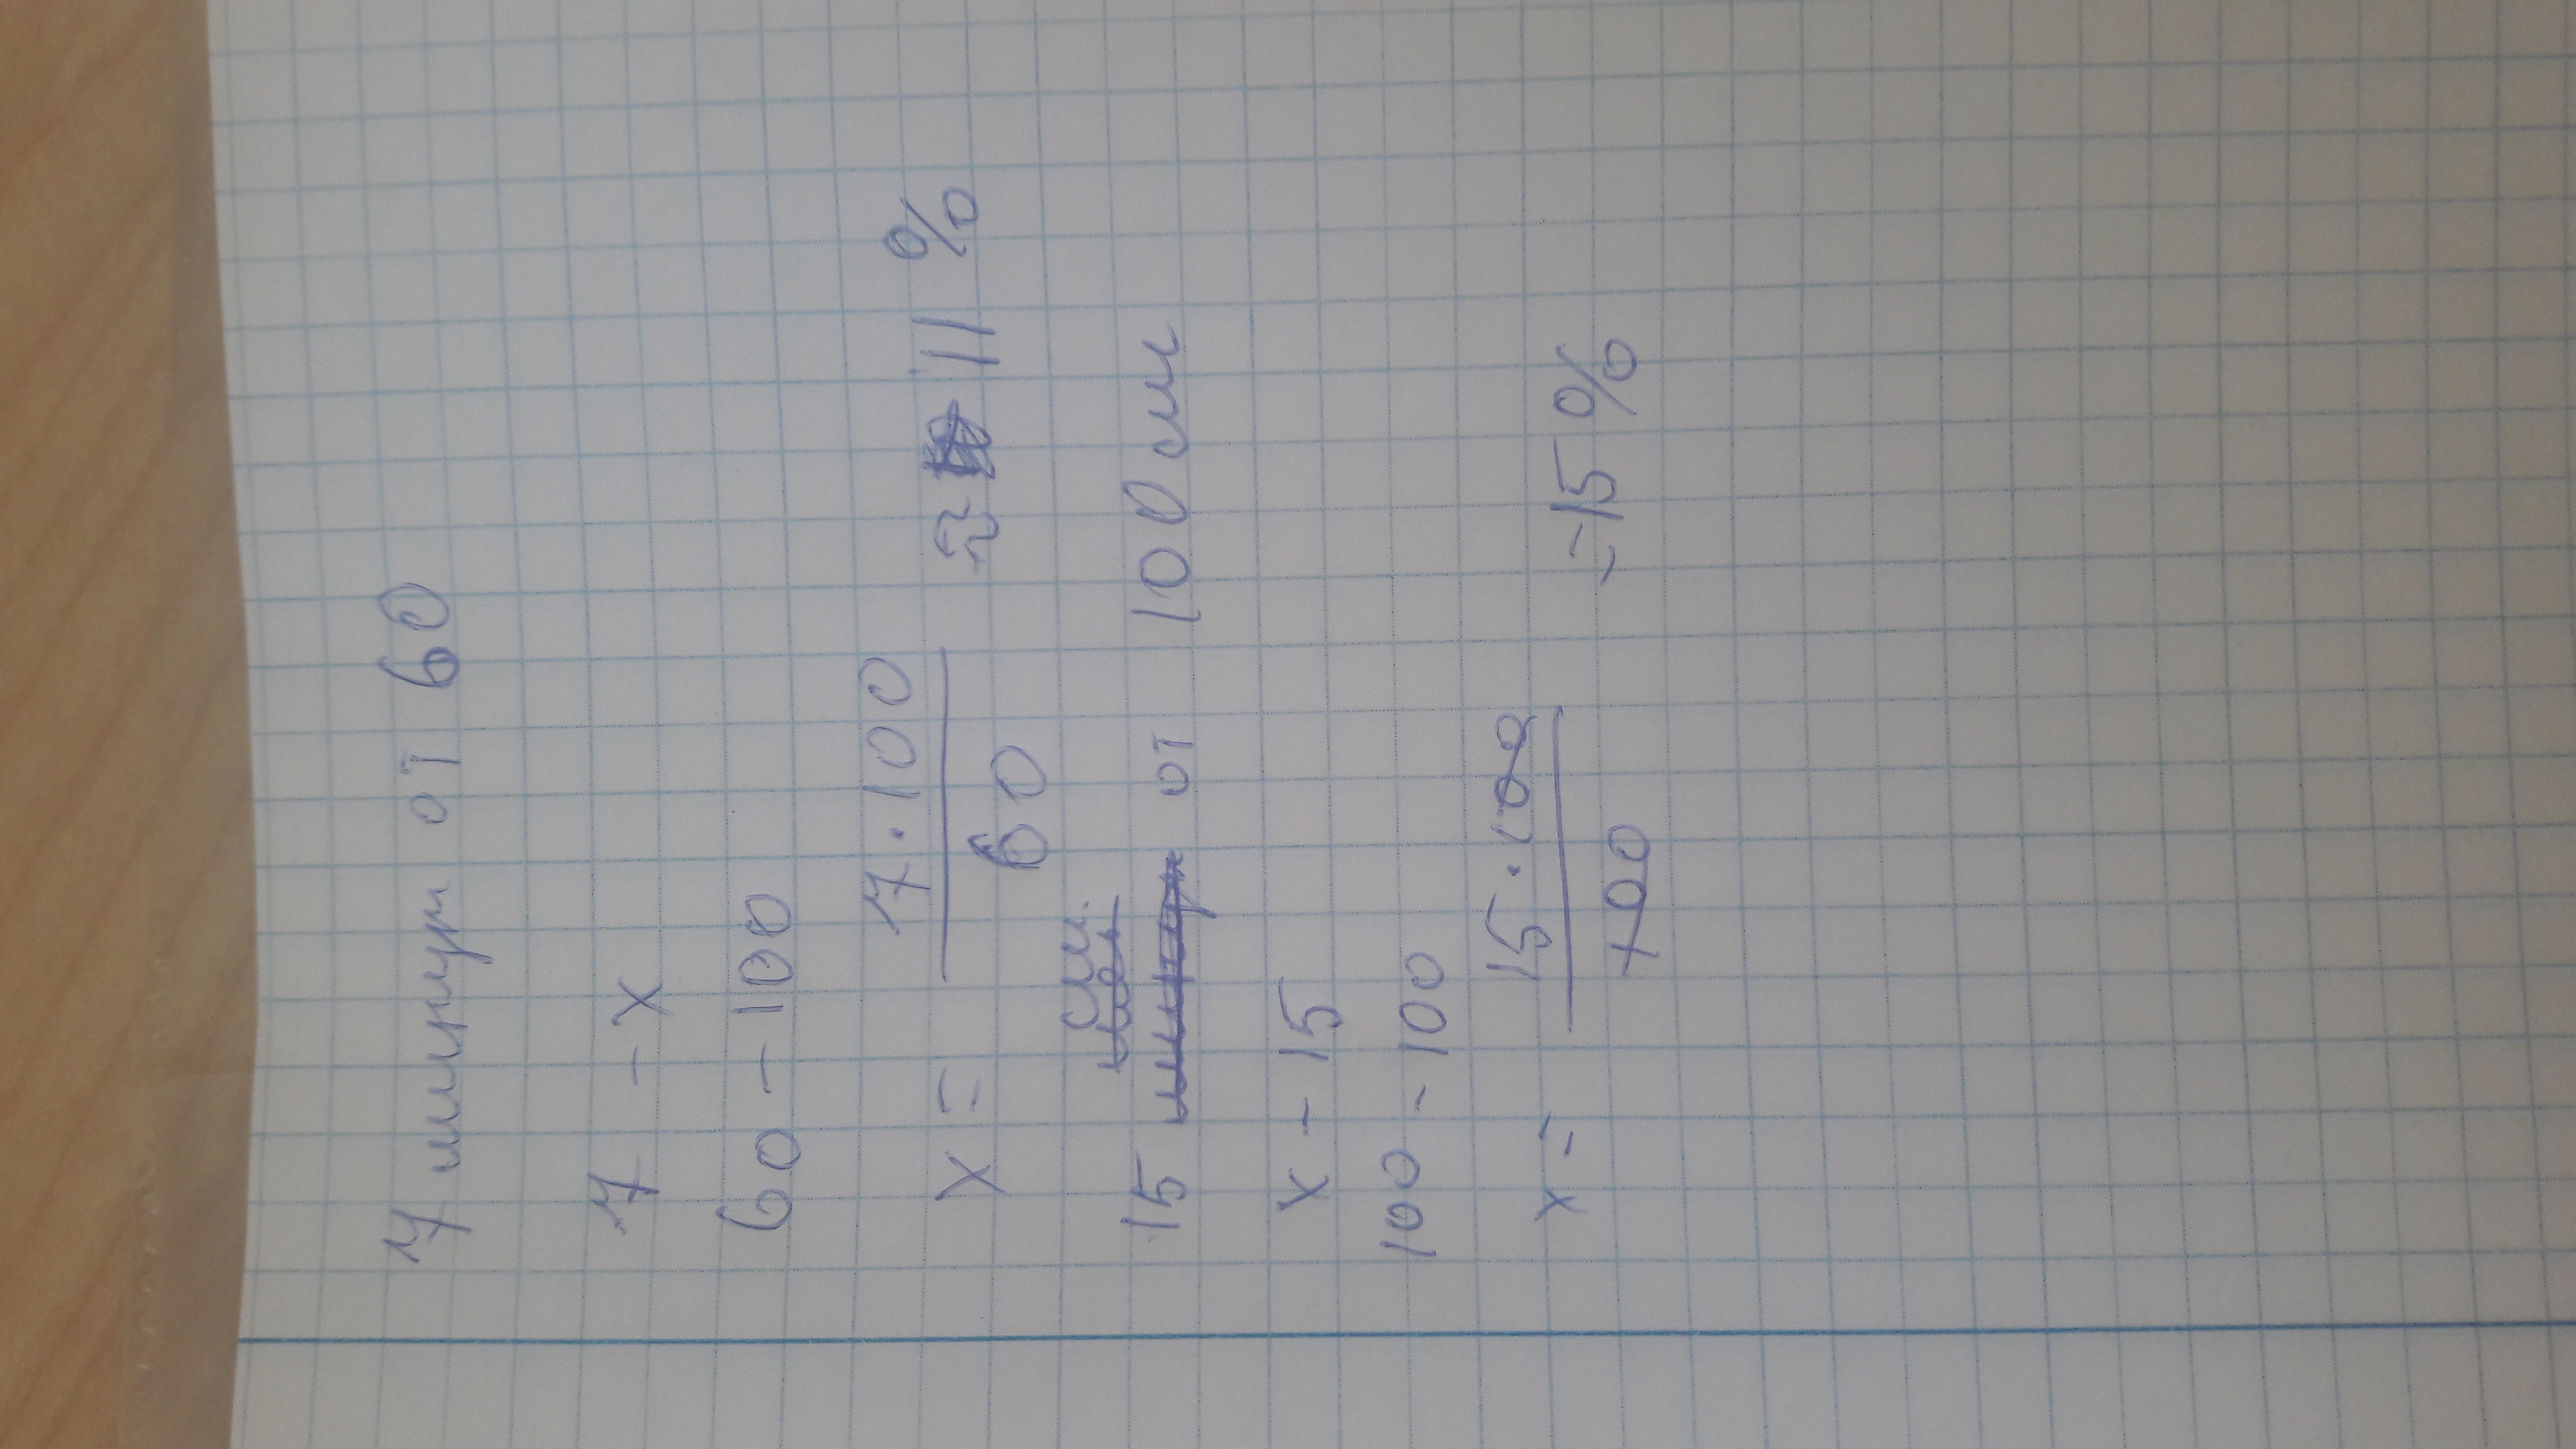 7 минут от 60
7 – x
60 – 100
x = 7·100 / 60 ≈ 11 %
см.
15 от 100 см
x – 15
100 – 100
x = 15·100 / 100 = 15 %